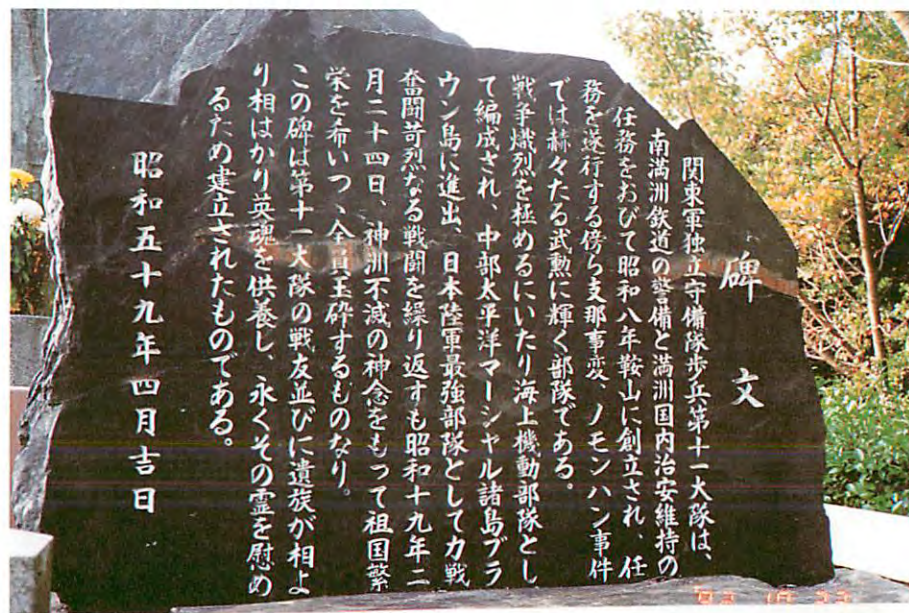 碑文
関東軍独立守備隊歩兵第十一大隊は、
南満洲鉄道の警備と満洲国内治安維持の
任務をおびて昭和八年鞍山に創立され、任
務を遂行する傍ら支那事変、ノモンハン事件
では赫々たる武勲に輝く部隊である。
戦争熾烈を極めるにいたり海上機動部隊とし
て編成され、中部太平洋マーシャル諸島ブラ
ウン島に進出、日本陸軍最強部隊として力戦
奮闘苛烈なる戦闘を繰り返すも昭和十九年二
月二十四日、神洲不滅の神念をもって祖国繁
栄を希いつゝ全員玉砕するものなり。
この碑は第十一大隊の戦友並びに遺族が相よ
り相はかり英魂を供養し、永くその霊を慰め
るため建立されたものである。
昭和五十九年四月吉日